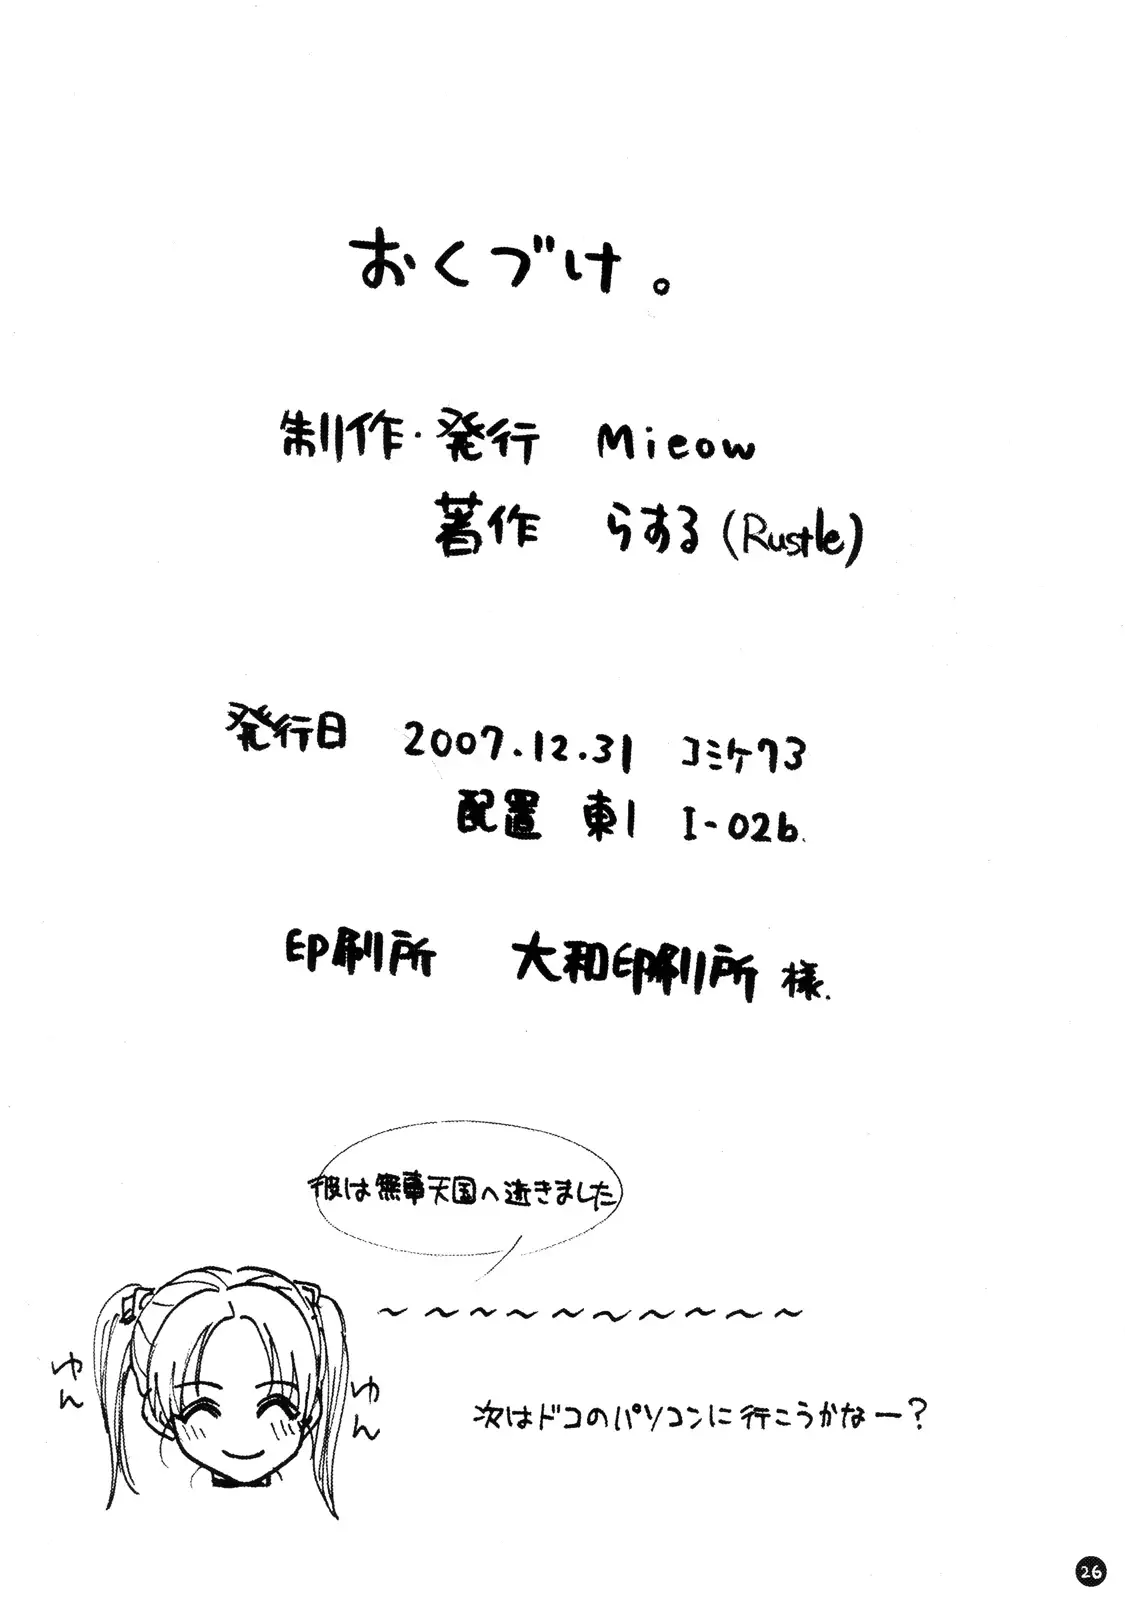 おくづけ。
制作・発行 Mieow
著作 らする(Rustle)
発行日 2007.12.31 コミケ73
配置 東1 I-02b.
印刷所 大和印刷所様.
彼は無事天国へ逝きました
~~~~~~~~~~
ゆん
ゆん
次はドコのパソコンに行こうかなー?
26